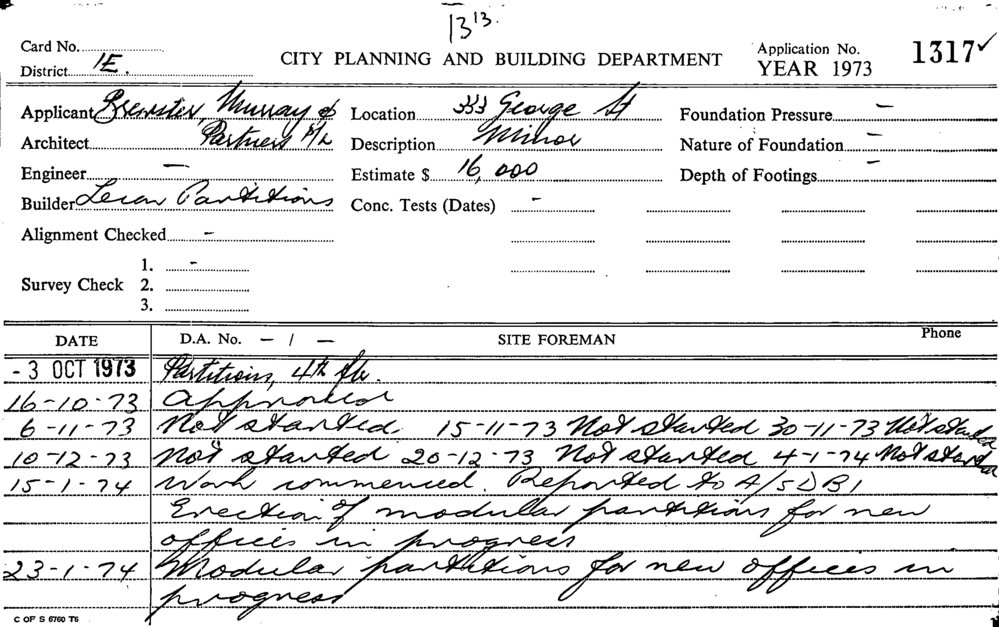 13 13.
Card No.
District 1E.
CITY PLANNING AND BUILDING DEPARTMENT
Application No.
YEAR 1973
1317 ✓
Applicant Brewster, Murray &
Architect Partners P/L
Engineer —
Builder Partitions
Alignment Checked –
Survey Check
1. -
2.
3.
Location 333 George St
Description Minor
Estimate $ 16,000
Conc. Tests (Dates) -
Foundation Pressure –
Nature of Foundation –
Depth of Footings –
DATE D.A. No. — / — SITE FOREMAN Phone
- 3 OCT 1973 Partitions, 4th flr.
16-10-73 Approved
6-11-73 Not started 15-11-73 Not started 30-11-73 Not started
10-12-73 Not started 20-12-73 Not started 4-1-74 Not started
15-1-74 Work commenced. Reported to A/SDB1
Erection of modular partitions for new
offices in progress
23-1-74 Modular partitions for new offices in
progress
C OF S 6760 T6